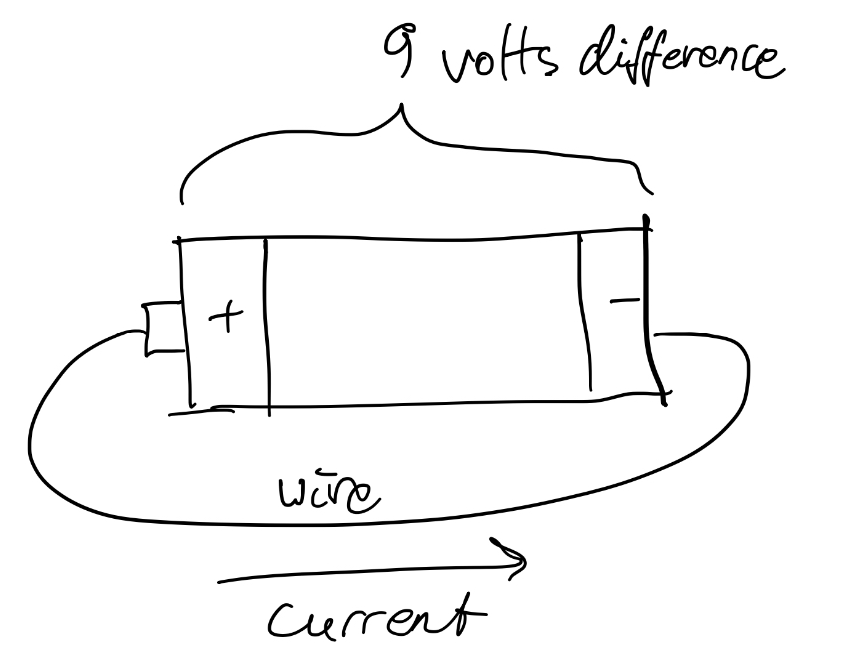 9 volts difference
+
−
wire
current